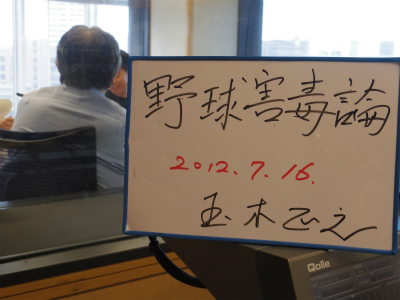 野球害毒論
2012.7.16.
玉木正之
Qolle